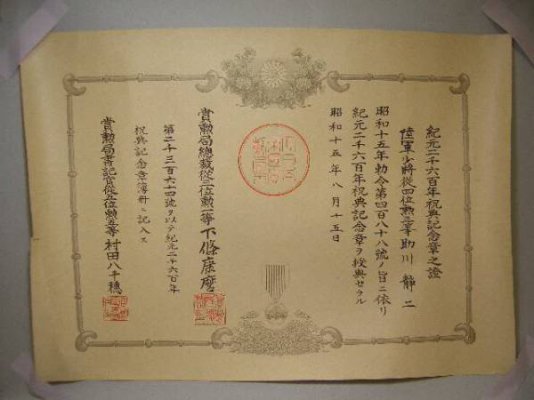 紀元二千六百年祝典記念章之證
陸軍少將從四位勲三等助川靜二
昭和十五年勅令第四百八十八號ノ旨ニ依リ
紀元二千六百年祝典記念章ヲ授與セラル
昭和十五年八月十五日
賞勲局總裁從三位勲二等下條康麿
第二千三百六十四號ヲ以テ紀元二千六百年
祝典記念章簿册ニ記入ス
賞勲局書記官從五位勲五等村田八千穂